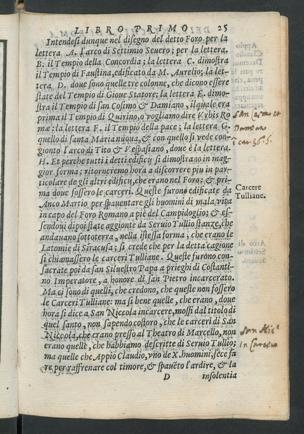 LIBRO PRIMO. 25
Intendesi dunque nel disegno del detto Foro, per la
lettera A. l'arco di Settimio Seuero; per la lettera,
B. il Tempio della Concordia; la lettera C. dimostra
il Tempio di Faustina, edificato da M. Aurelio; la let-
tera D. doue sono quelle tre colonne, che dicono essere
state del Tempio di Gioue Statore; la lettera E. dimo-
stra il Tempio di san Cosimo & Damiano, il quale era
prima il Tempio di Quirino, o vogliamo dire
ma: la lettera F. il Tempio della pace; la lettera G.
quello di santa Maria nuoua, & con quello si vede con-
gionto l'arco di Tito & Vespasiano, doue è la lettera
H. Et perche tutti i detti edificij si dimostrano in mag-
gior forma; ritorneremo hora a discorrere piu in par-
ticolare degli altri edificij, che erano nel Foro; & pri-
ma doue fossero le carceri. Queste furono edificate da
Anco Martio per spauentare gli huomini di mala vita
in capo del Foro Romano a piè del Campidoglio; & es-
sendoui dipoi state aggionte da Seruio Tullio stanze, che
andauano sottoterra, nella istessa forma, che erano le
Latomie di Siracusa; si crede che per la detta cagione
si chiamassero le carceri Tulliane. Queste furono con-
sacrate poi da san Siluestro Papa a prieghi di Costanti-
no Imperatore, a honore di san Pietro incarcerato.
Ma ci sono di quelli, che credono, che queste non fossero
le Carceri Tulliane: ma si bene quelle, che erano, doue
hora si dice a San Niccola incarcere, mossi dal titolo di
quel santo, non sapendo costoro, che le carceri di San
Niccola, che erano presso al Theatro di Marcello, non
erano quelle, che habbiamo descritte di Seruio Tullio;
ma quelle che Appio Claudio, vno de X. huomini, fece fa
re per gaffrenare col timore, & spauēto l'ardire, & la
D insolentia
Carcere
Tulliane.